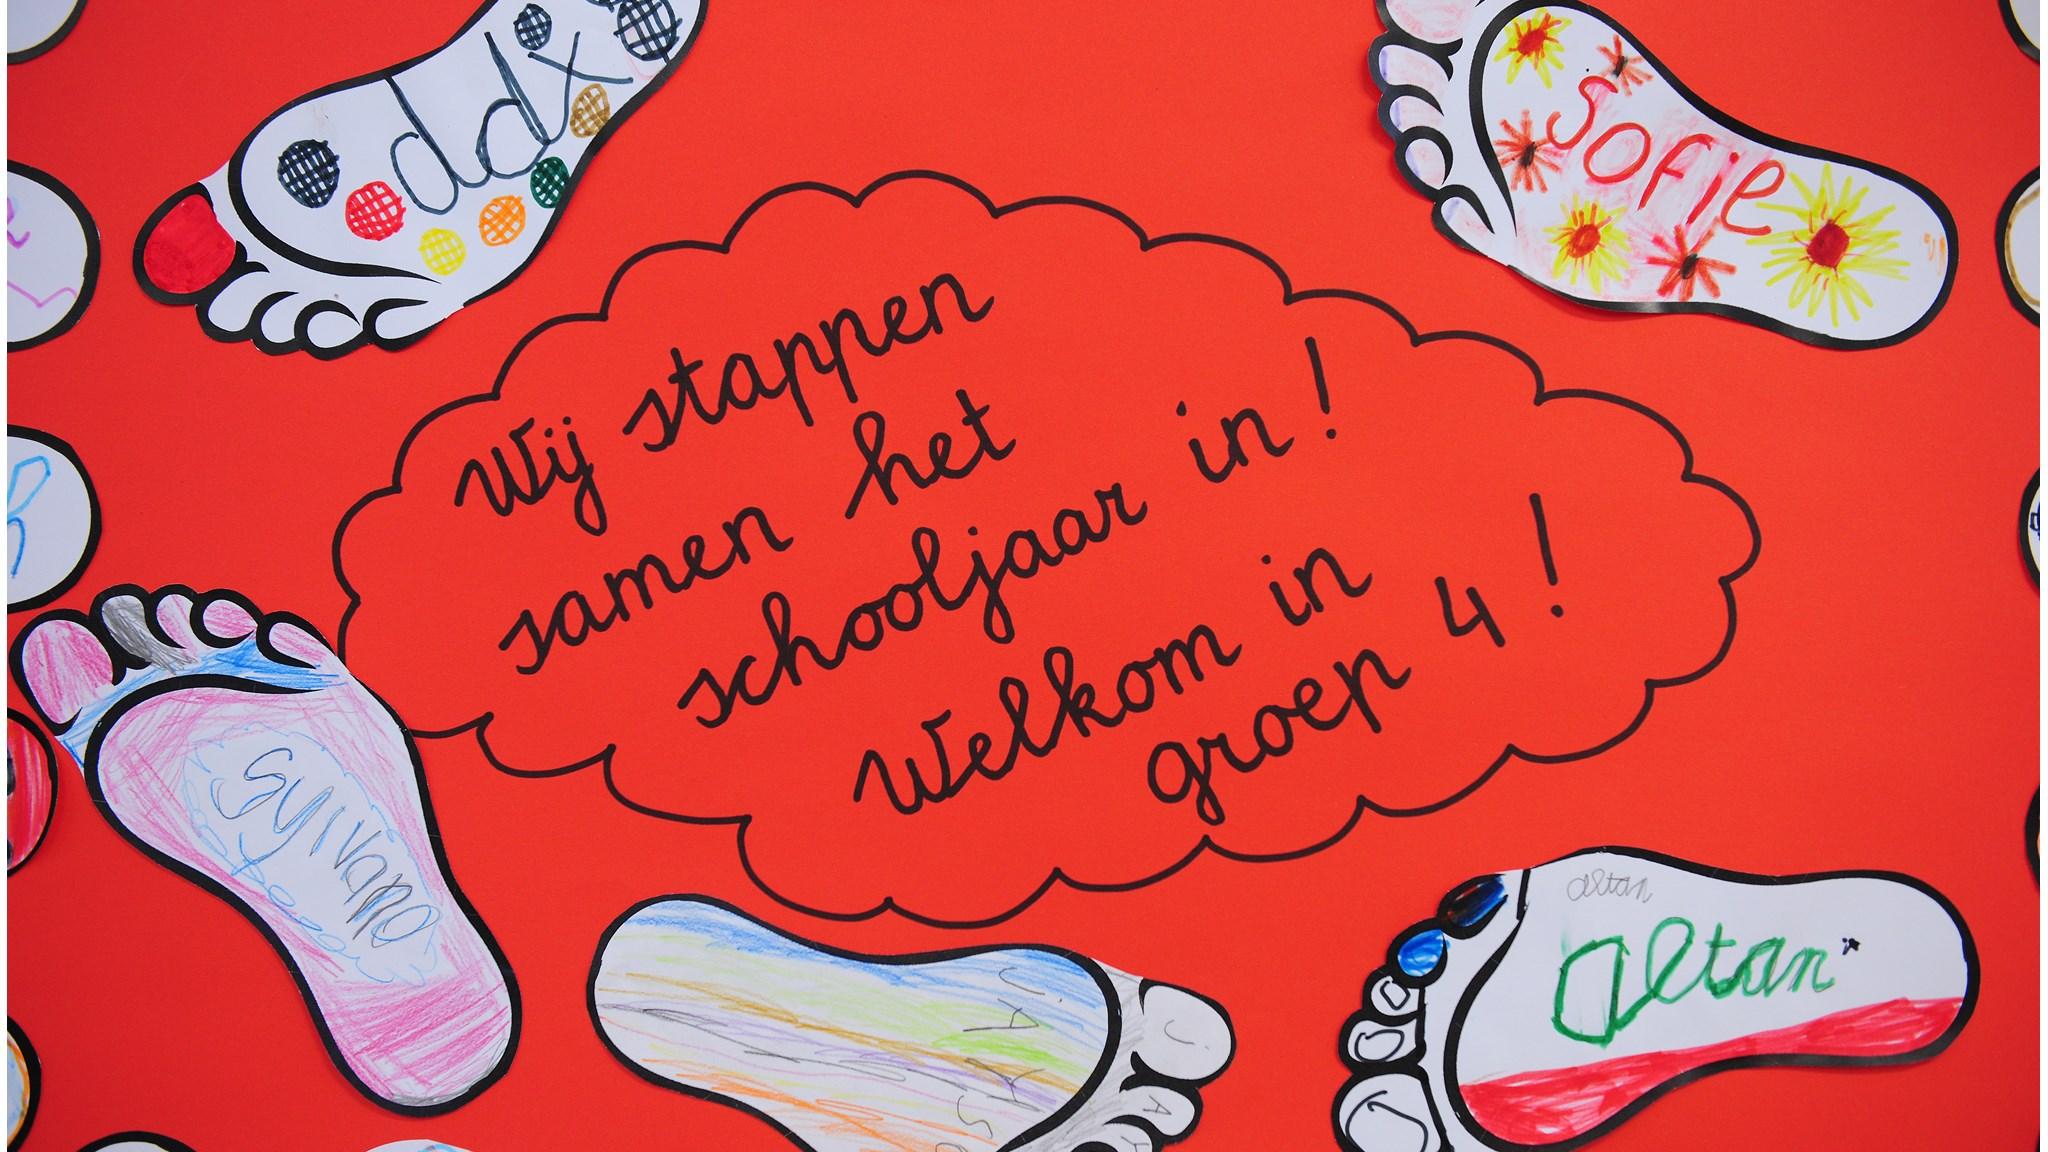 ddx
Sofie
Wij stappen
samen het
schooljaar in!
Welkom in
groep 4!
altan
altan